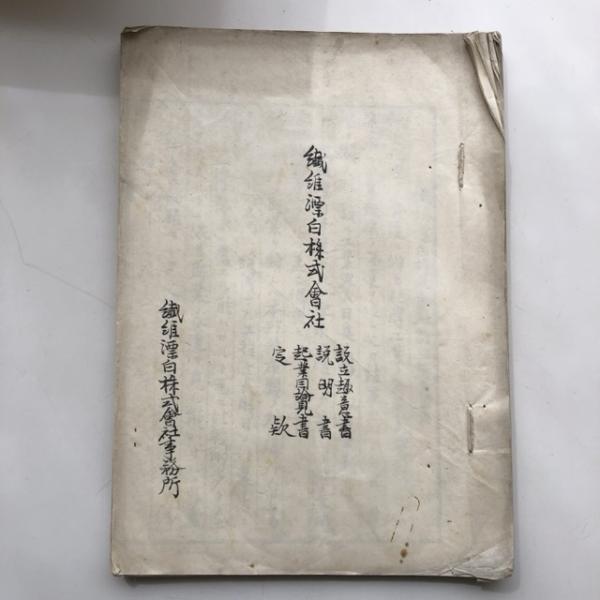 繊維漂白株式會社
設立趣意書
説明書
起業目論見書
定款
繊維漂白株式會社事務所